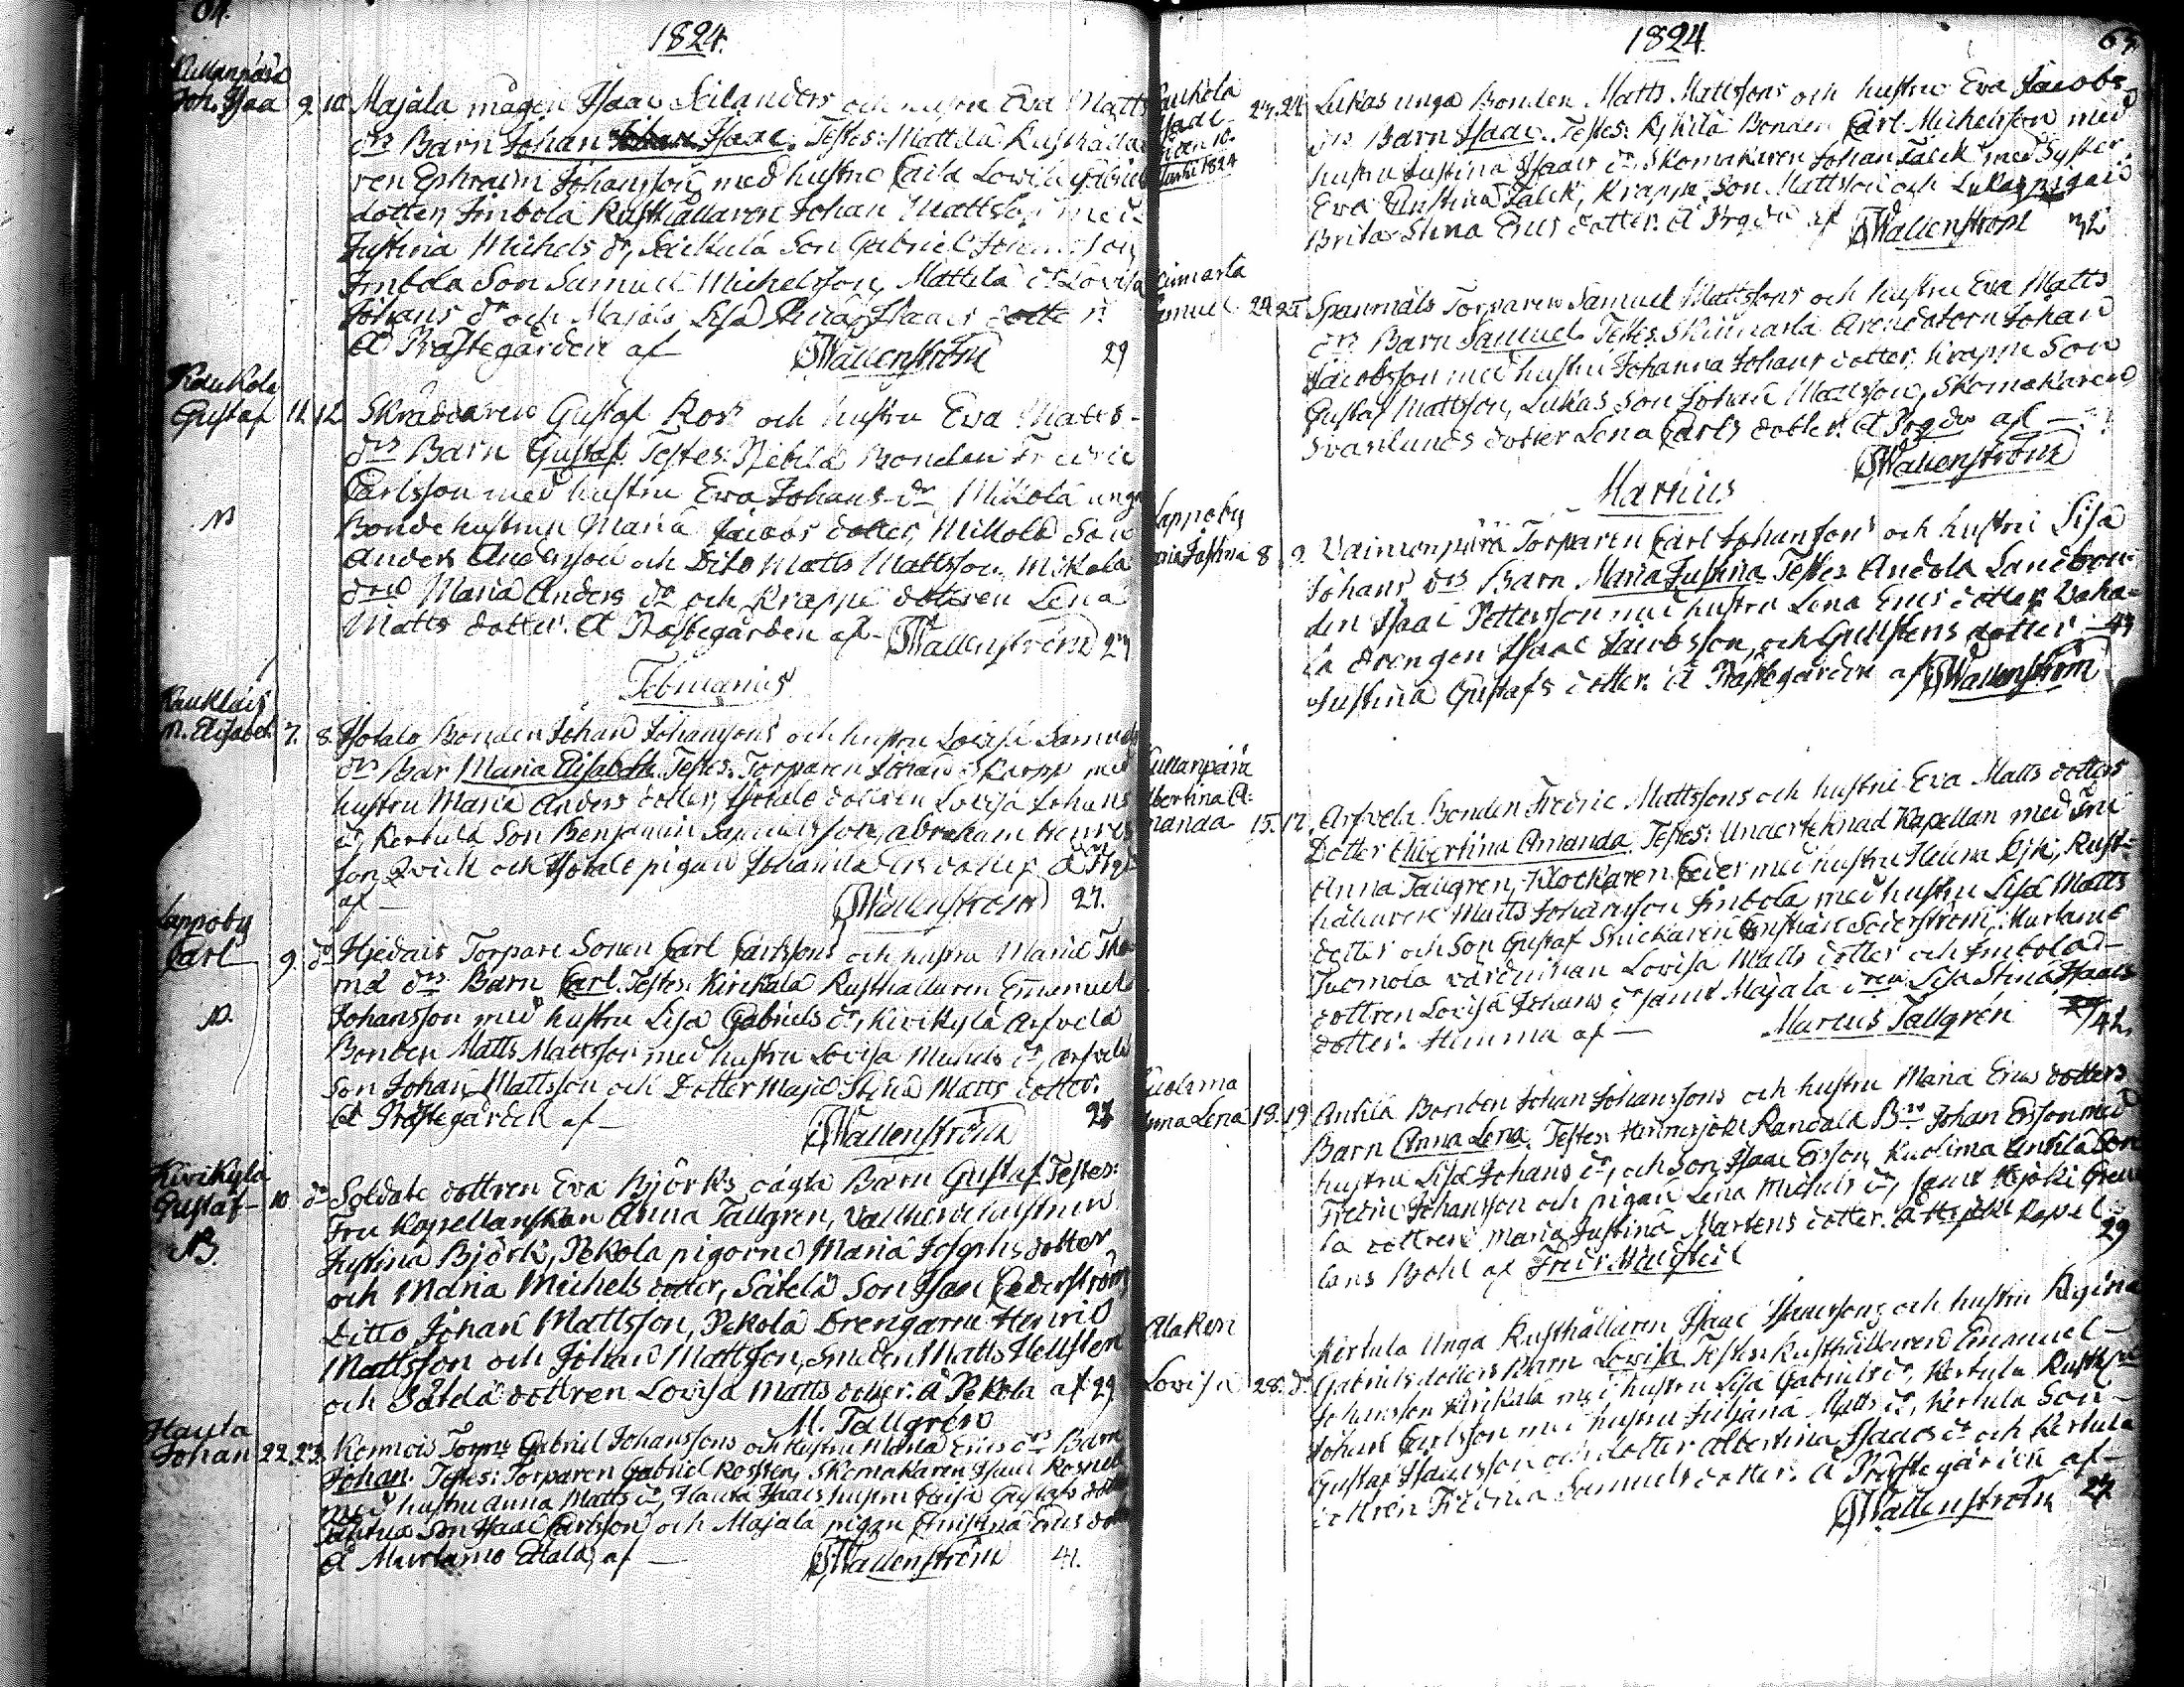 64.
1824.
Kullanpää
Joh. Isaa 9. 10. Majala mågen Isaac Seilanders och hustru Eva Matts
drs Barn Johan Isaac. Testes: Mattila Rusthålla
ren Ephraim Johansson med hustru Caisa Lovisa Gabriels
dotter, Simbola Rusthållaren Johan Mattsson med
Justina Michels dr, Son Gabriel
Simbola Son Samuel Michelsson, Mattila dr Lovisa
Johans dr och Majala Lisa Stina Isaacs dotter.
å Prästegården af Wallenström 29
Kaukola
Gustaf 11. 12. Skräddaren Gustaf Ros och hustru Eva Matts-
drs Barn Gustaf. Testes: Bonden Fredric
Carlsson med hustru Eva Johans dr Mikola unga
Bonde hustrun Maria Jacobs dotter, Mikola Son
Anders Andersson och Dito Matts Mattsson, Mikola
dren Maria Anders dr och Krappe dottren Lena
Matts dotter. å Prästegården af Wallenström 29
Februarius
M. Elisabet 7. 8. Isotalo Bonden Johan Johanssons och hustru Lovisa Samuels
drs Bar Maria Elisabeth. Testes: Torparen Johan Skarpp med
hustru Maria Anders dotter, Isotalo dottren Lovisa Johans
dr, Kertula Son Benjamin Samuelsson, Abraham Henrics
son Qvick och Isotalo pigan Johanna dotter å
af Wallenström 27.
Lappoby
Carl 9. do Hjedais Torpare Sonen Carl Carlssons och hustru Maria Tho-
mæ drs Barn Carl. Testes: Kirikala Rusthållaren Emanuel
N. Johansson med hustru Lisa Gabriels dr, Kivikylä Arfvela
Bonden Matts Mattsson med hustru Lovisa Michels dr, Arfvela
Son Johan Mattsson och Dotter Maja Stina Matts dotter.
å Prästegården af Wallenström 27
Kivikylä
Gustaf 10 do Soldats dottren Eva Björks oägta Barn Gustaf. Testes:
Fru Kapellanskan Anna Tallgren, hustrun
NB. Justina Björk, Pekola pigorne Maria Josephs dotter
och Maria Michels dotter, Sätelä Son Isaac Cederström
Ditto Johan Mattsson, Pekola Drengarne Henric
Mattsson och Johan Mattsson, Smeden Matts Hellsten
och Sätelä dottren Lovisa Matts dotter. å Pekola af 29
M. Tallgren
Hauta
Johan 22. 23. Kennois Torp: Gabriel Johanssons och hustru Maria Erics drs Barn
Johan. Testes: Torparen Gabriel Rossten, Skomakaren Isaac Rosnell
med hustru Anna Matts dr, Hauta Isaacs hustru Caisa Gustafs dotter
Son Isaac Carlsson och Majala pigan Christina Erics dotter
å Murlamo Ettala, af Wallenström 41.
1824.
65.
Kaukola
Isaac 24. 24. Lukas unga Bonden Matts Mattssons och hustru Eva Jacobs
drs Barn Isaac. Testes: Bonden Carl Michelsson med
hustru Justina Isaacs dr Skomakaren Johan Falck med Syster
Eva Christina Falck, Krappe Son Mattsson och Lukas pigan
Brita Stina Erics dotter. å af Wallenström 32
Samuel 24. 25. Spannmåls Torparen Samuel Mattssons och hustru Eva Matts
drs Barn Samuel. Testes: Skinnarla Arendatorn Johan
Jacobsson med hustru Johanna Johans dotter, Krappe Son
Gustaf Mattsson, Lukas Son Johan Mattsson, Skomakaren
Svanlunds dotter Lena Carls dotter. å af
Wallenström
Martius
Lappoby
Maria Justina 8. 9. Vainionpää Torparen Carl Johanssons och hustru Lisa
Johans drs Barn Maria Justina. Testes: Andola Landbon-
den Isaac Pettersson med hustru Lena Erics dotter, Vaha-
la drengen Isaac Jacobsson, och Gullstens dotter
Justina Gustafs dotter. å Prästegården af Wallenström
Kullanpää
Albertina A-
manda 15. 17. Arfvela Bonden Fredric Mattssons och hustru Eva Matts dotters
Dotter Albertina Amanda. Testes: Undertecknad Kapellan med Fru
Anna Tallgren, Klockaren Ceder med hustru Helena Ojk, Rust-
hållaren Matts Johansson Simbola med hustru Lisa Matts
dotter och Son Gustaf, Snickaren Christian Söderström, Murlamo
Tuomola värdinnan Lovisa Matts dotter och Simbola-
dottren Lovisa Johans dr samt Majala dren Lisa Stina Isaacs
dotter. Hemma af Marcus Tallgren 42.
Kuolima
Anna Lena 18. 19. Anhila Bonden Johan Johanssons och hustru Maria Erics dotters
Barn Anna Lena. Testes: Hinnerjoki Randala Bn Johan Ersson med
hustru Lisa Johans dr, och Son Isaac Ersson, Kuolima Anhila Son
Fredric Johansson och pigan Lena Michels dr, samt
dottren Maria Justina Mårtens dotter. å Kapel-
lans Bohl af Fredr. 29
Alakeri
Lovisa 28. do Kertula Unga Rusthållaren Isaac Isaacssons och hustru Regina
Gabriels dotters Barn Lovisa. Testes: Rusthållaren Emanuel
Johansson Kirikala med hustru Lisa Gabriels dr, Kertula
Johan Carlsson med hustru Juliana Matts dr, Kertula Son
Gustaf Isaacsson och dotter Albertina Isaacs dr och Kertula
dottren Fredrica Samuels dotter. å Prästegården af
Wallenström 27.